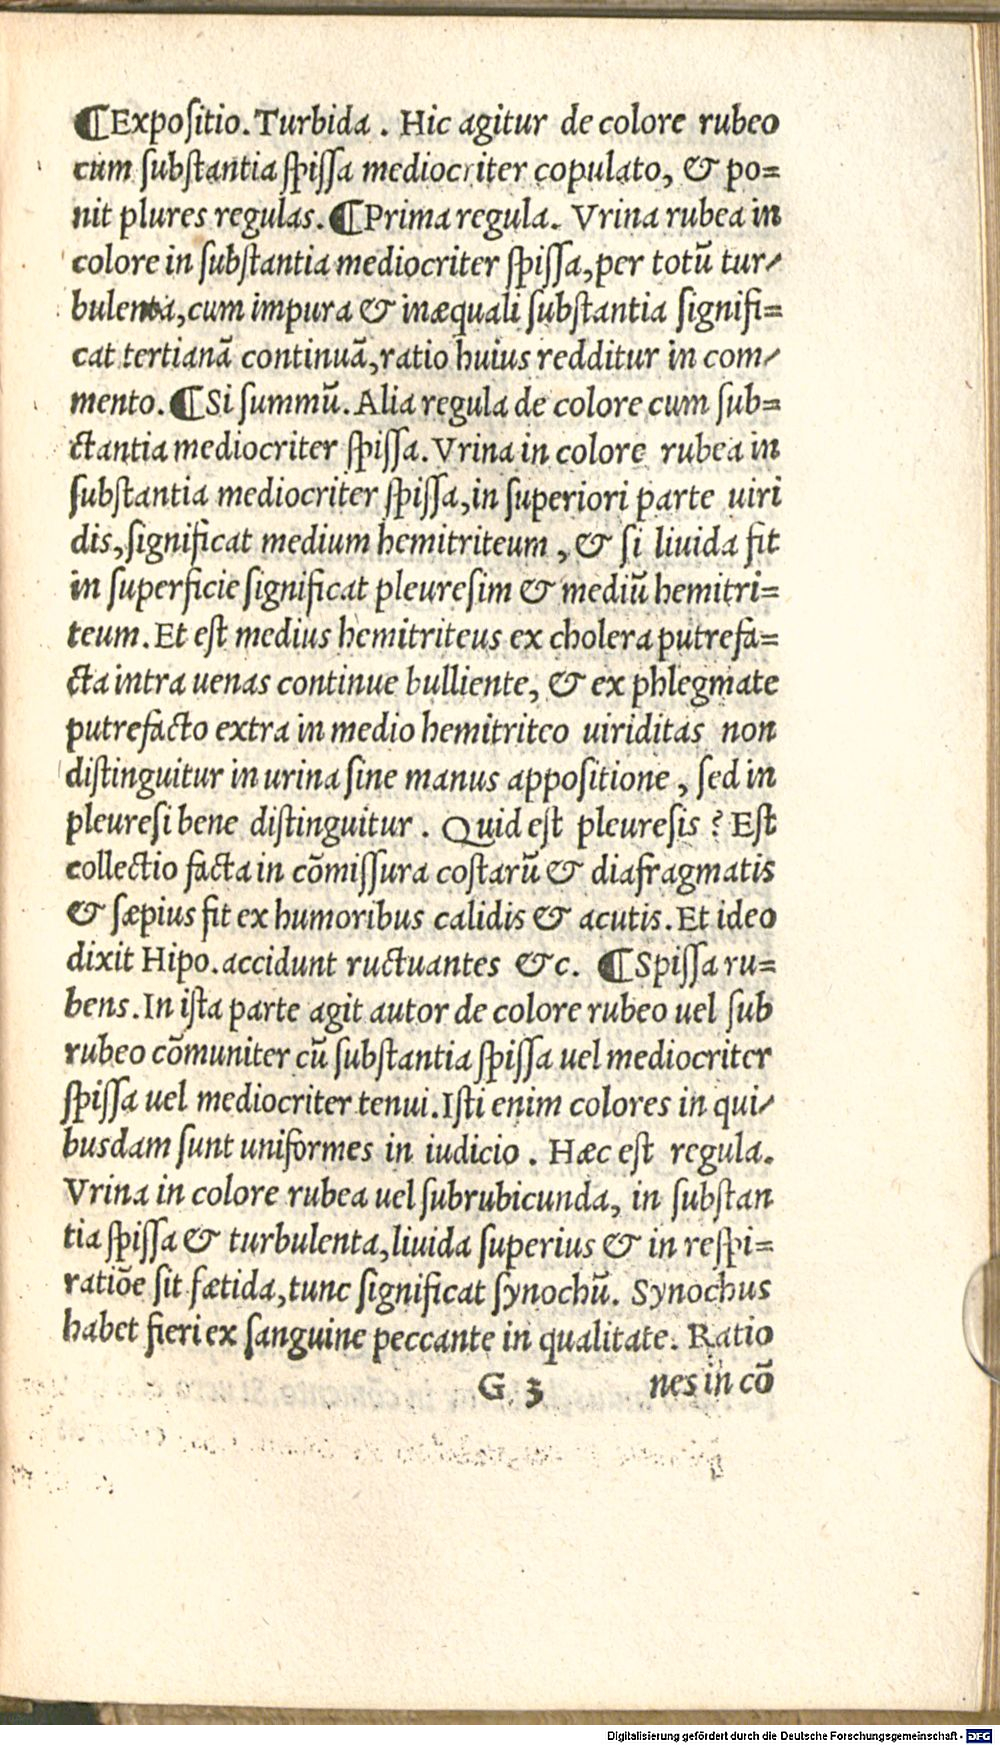 ¶Expoſitio. Turbida. Hic agitur de colore rubeo
cum ſubſtantia ſpiſſa mediocriter copulato, & po=
nit plures regulas. ¶Prima regula. Vrina rubea in
colore in ſubſtantia mediocriter ſpiſſa, per totū tur⸗
bulenta, cum impura & inæquali ſubſtantia ſignifi=
cat tertianā continuā, ratio huius redditur in com⸗
mento. ¶Si ſummū. Alia regula de colore cum ſub=
ctantia mediocriter ſpiſſa. Vrina in colore rubea in
ſubſtantia mediocriter ſpiſſa, in ſuperiori parte uiri
dis, ſignificat medium hemitriteum, & ſi liuida fit
in ſuperficie ſignificat pleureſim & mediū hemitri=
teum. Et eſt medius hemitriteus ex cholera putrefa=
cta intra uenas continue bulliente, & ex phlegmate
putrefacto extra in medio hemitriteo uiriditas non
diſtinguitur in urina ſine manus appoſitione, ſed in
pleureſi bene diſtinguitur. Quid eſt pleureſis? Eſt
collectio facta in cōmiſſura coſtarū & diafragmatis
& ſæpius fit ex humoribus calidis & acutis. Et ideo
dixit Hipo. accidunt ructuantes &c. ¶Spiſſa ru=
bens. In iſta parte agit autor de colore rubeo uel ſub
rubeo cōmuniter cū ſubſtantia ſpiſſa uel mediocriter
ſpiſſa uel mediocriter tenui. Iſti enim colores in qui⸗
busdam ſunt uniformes in iudicio. Hæc eſt regula.
Vrina in colore rubea uel ſubrubicunda, in ſubſtan
tia ſpiſſa & turbulenta, liuida ſuperius & in reſpi=
ratiōe ſit fætida, tunc ſignificat ſynochū. Synochus
habet fieri ex ſanguine peccante in qualitate. Ratio
G 3 nes in cō
Digitalisierung gefördert durch die Deutsche Forschungsgemeinschaft - DFG